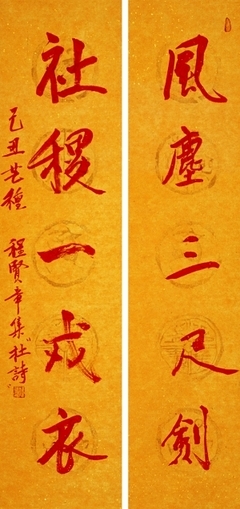 風塵三尺劍
社稷一戎衣
己丑芒種
程賢章集杜詩